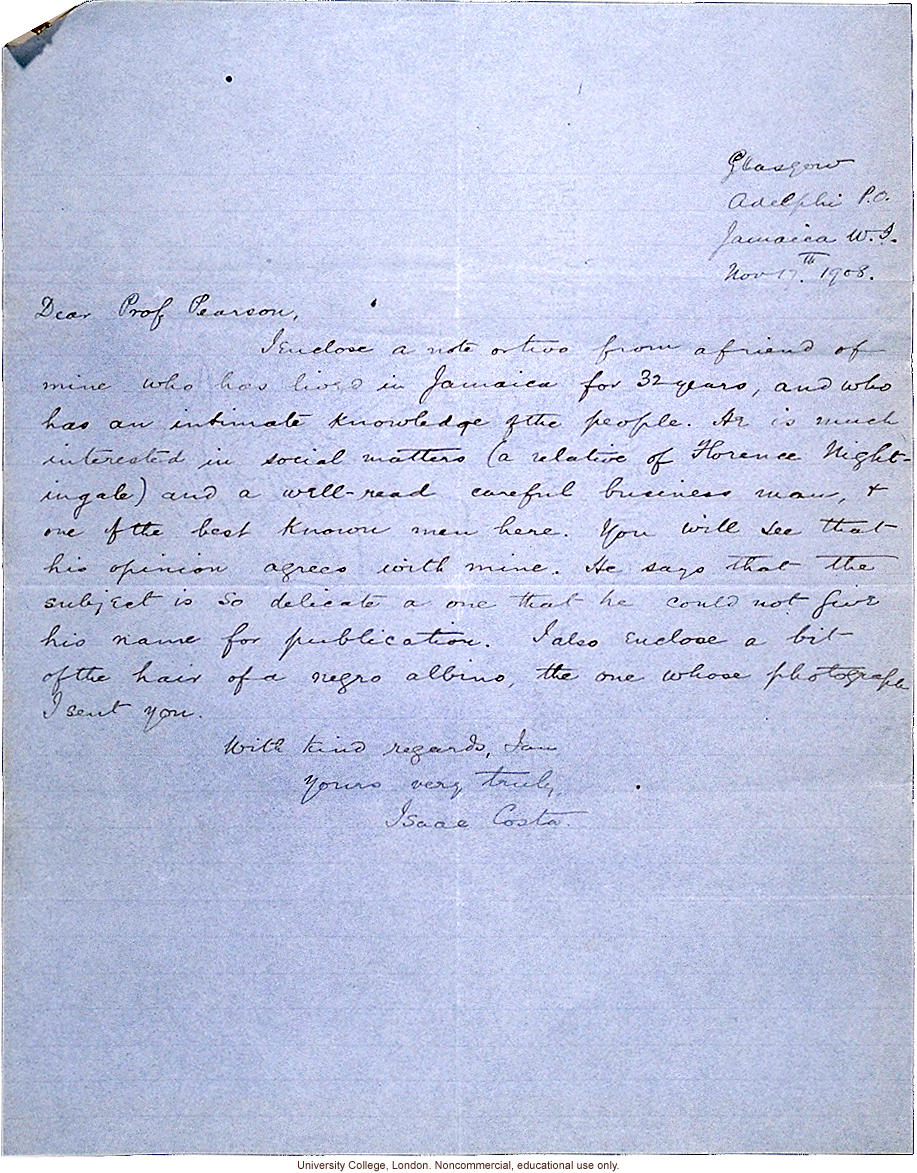 Glasgow
Adelphi P.O.
Jamaica W.I.
Nov 17th. 1908.
Dear Prof Pearson,
I enclose a note or two from a friend of
mine who has lived in Jamaica for 32 years, and who
has an intimate knowledge of the people. He is much
interested in social matters (a relative of Florence Night-
ingale) and a well-read careful business man, +
one of the best known men here. You will see that
his opinion agrees with mine. He says that the
subject is so delicate a one that he could not give
his name for publication. I also enclose a bit
of the hair of a negro albino, the one whose photograph
I sent you.
With kind regards, I am
yours very truly,
Isaac Costa.
University College, London. Noncommercial, educational use only.